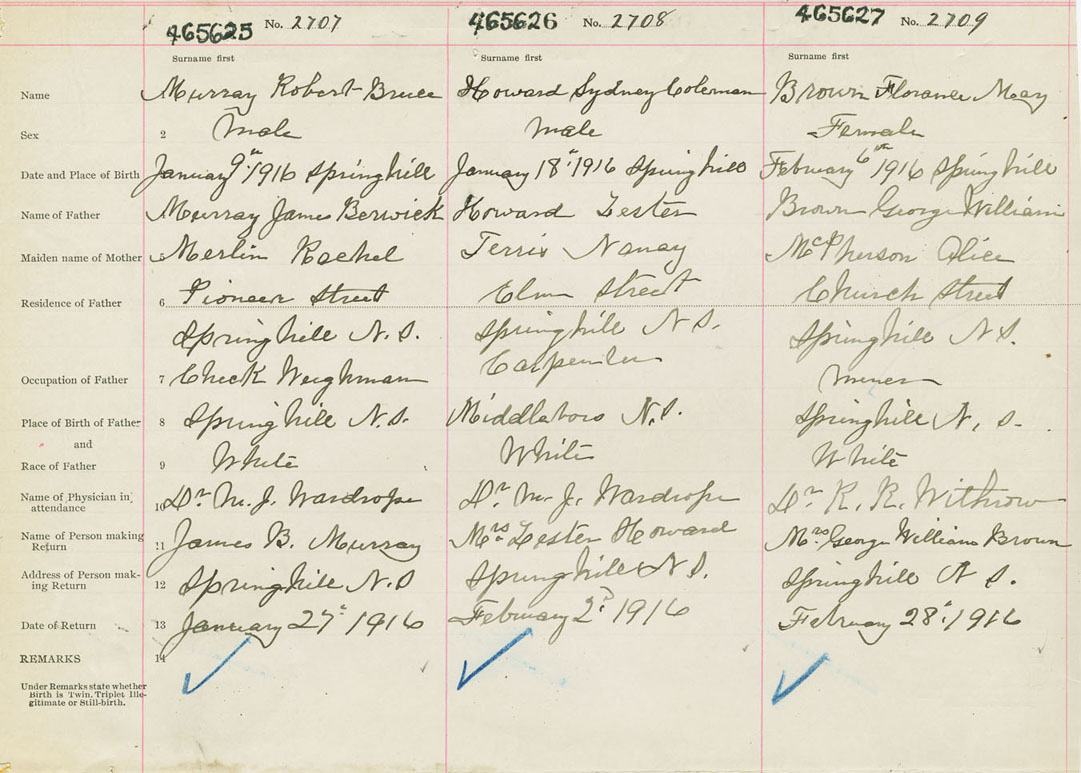 465625 No. 2707 465626 No. 2708 465627 No. 2709
Surname first Surname first Surname first
Name Murray Robert Bruce Howard Sydney Coleman Brown Florance May
Sex 2 Male Male Female
Date and Place of Birth January 9th 1916 Springhill January 18th 1916 Springhill February 6th 1916 Springhill
Name of Father Murray James Berwick Howard Lester Brown George William
Maiden name of Mother 5 Merlin Rachel Terris Nancy McPherson Alice
Residence of Father 6 Pioneer Street Elm Street Church Street
Springhill N.S. Springhill N S. Springhill N S.
Occupation of Father 7 Check Weighman Carpenter Miner
Place of Birth of Father 8 Springhill N.S. Middleboro N.S. Springhill N. S.
and
Race of Father 9 White White White
Name of Physician in
attendance 10 Dr M. J. Wardrope Dr M. J. Wardrope Dr R. R. Withrow
Name of Person making
Return 11 James B. Murray Mrs Lester Howard Mrs George William Brown
Address of Person mak-
ing Return 12 Springhill N.S Springhill N.S. Springhill N S.
Date of Return 13 January 27th 1916 February 2d 1916 February 28th 1916
REMARKS 14
Under Remarks state whether
Birth is Twin, Triplet Ille-
gitimate or Still-birth.